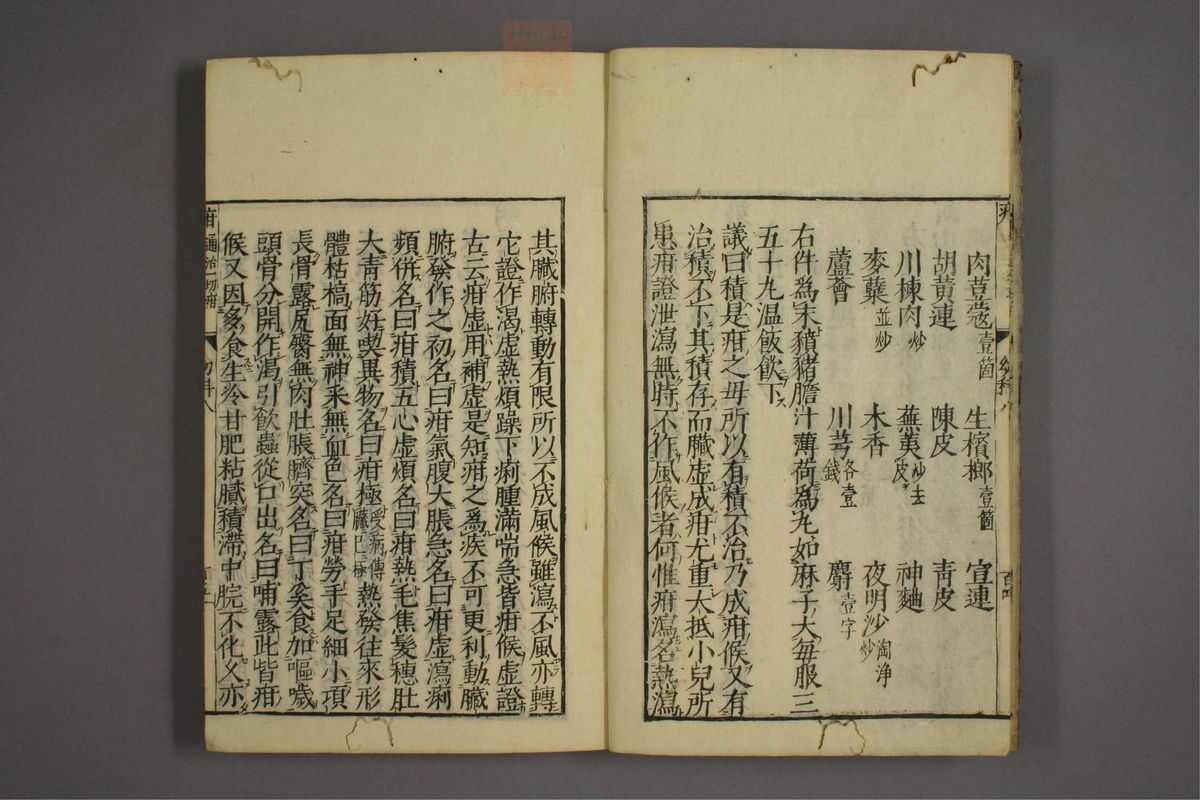 肉荳蔲壹箇 生檳榔壹箇 宣連
胡黃連 陳皮 靑皮
川楝肉炒 蕪荑炒去皮 神麯
麥蘖並炒 木香 夜明沙淘浄炒
蘆薈 川芎各壹錢 麝壹字
右件為末豶猪膽汁薄荷為丸如麻子大每服三
五十丸温飯飲下
議曰積是疳之母所以有積不治乃成疳候又有
治積不下其積存而臟虛成疳尤重大抵小兒所
患疳證泄瀉無時不作風候者何惟疳瀉名熱瀉
其臟腑轉動有限所以不成風候雖瀉不風亦轉
它證作渴虛熱煩躁下痢腫滿喘急皆疳候虛證
古云疳虛用補虛是知疳之爲疾不可更利動臟
腑發作之初名曰疳氣腹大脹急名曰疳虛瀉痢
頻併名曰疳積五心虛煩名曰疳熱毛焦髮穗肚
大青筋好喫異物名曰疳極受病傳臟已極熱發往來形
體枯槁面無神釆無血色名曰疳勞手足細小項
長骨露尻臀無肉肚脹臍突名曰丁奚食加嘔噦
頭骨分開作渴引飲蟲從口出名曰哺露此皆疳
候又因多食生冷甘肥粘膩積滯中脘不化又亦